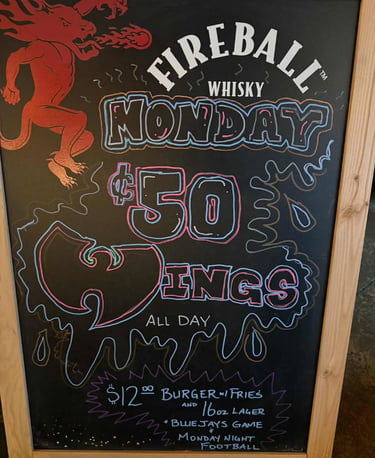 FIREBALL™
WHISKY
MONDAY
¢50
WINGS
ALL DAY
$12.00 BURGER w/ FRIES
AND 16oz LAGER
* BLUEJAYS GAME
* MONDAY NIGHT
FOOTBALL